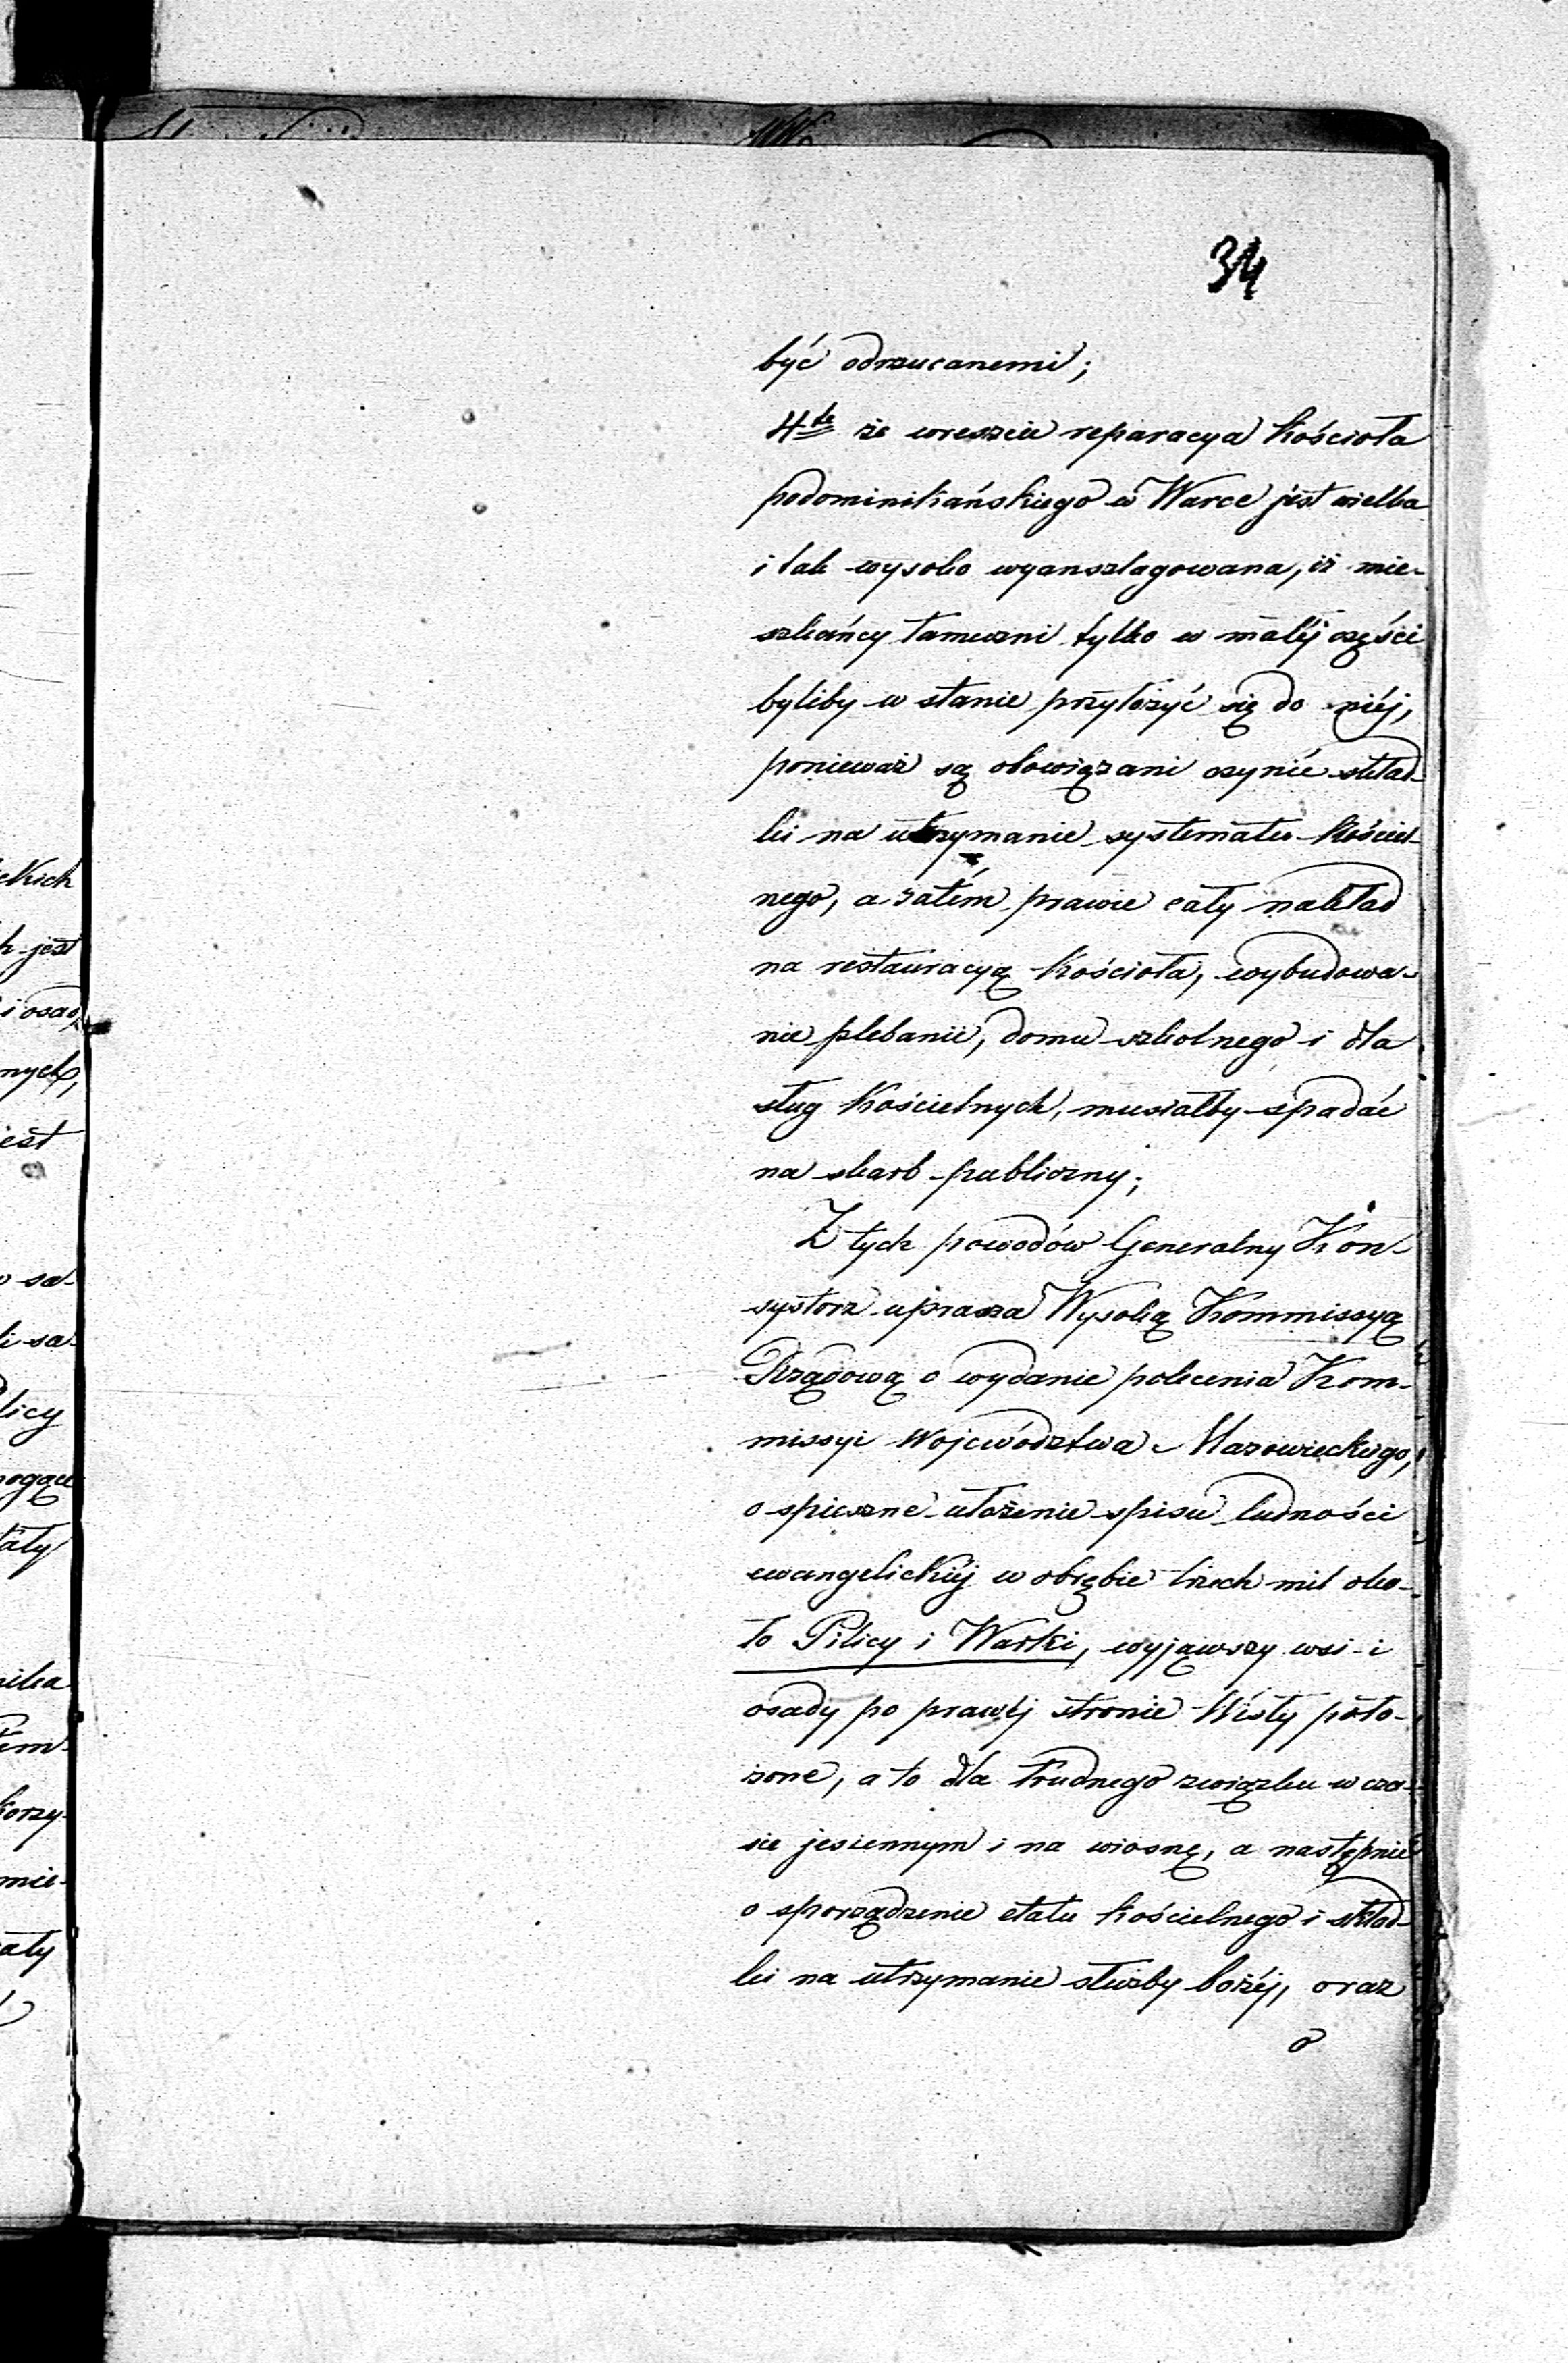 34
być odrzucanemi;
4te że wreszcie reparacya kościoła
podominikańskiego w Warce jest wielka
i tak wysoko wyanszlagowana, iż mie-
szkańcy tameczni tylko w małéj części
byliby w stanie przyłożyć się do niéj,
ponieważ są obowiązani czynić skład-
ki na utrzymanie systematu kościel-
nego, a zatém prawie cały nakład
na restauracyą kościoła, wybudowa-
nie plebanii, domu szkolnego i dla
sług kościelnych, musiałby spadać
na skarb publiczny;
Z tych powodów Generalny Kon-
systorz uprasza Wysoką Kommissyą
Rządową o wydanie polecenia Kom-
missyi Województwa Mazowieckiego,
o spieszne ułożenie spisu ludności
ewangelickiéj w obrębie trzech mil oko-
ło Pilicy i Warki, wyjąwszy wsi i
osady po prawéj stronie Wisły poło-
żone, a to dla trudnego związku w cza-
sie jesiennym i na wiosnę, a następnie
o sporządzenie etatu kościelnego i skład-
ki na utrzymanie służby bożéj, oraz
o